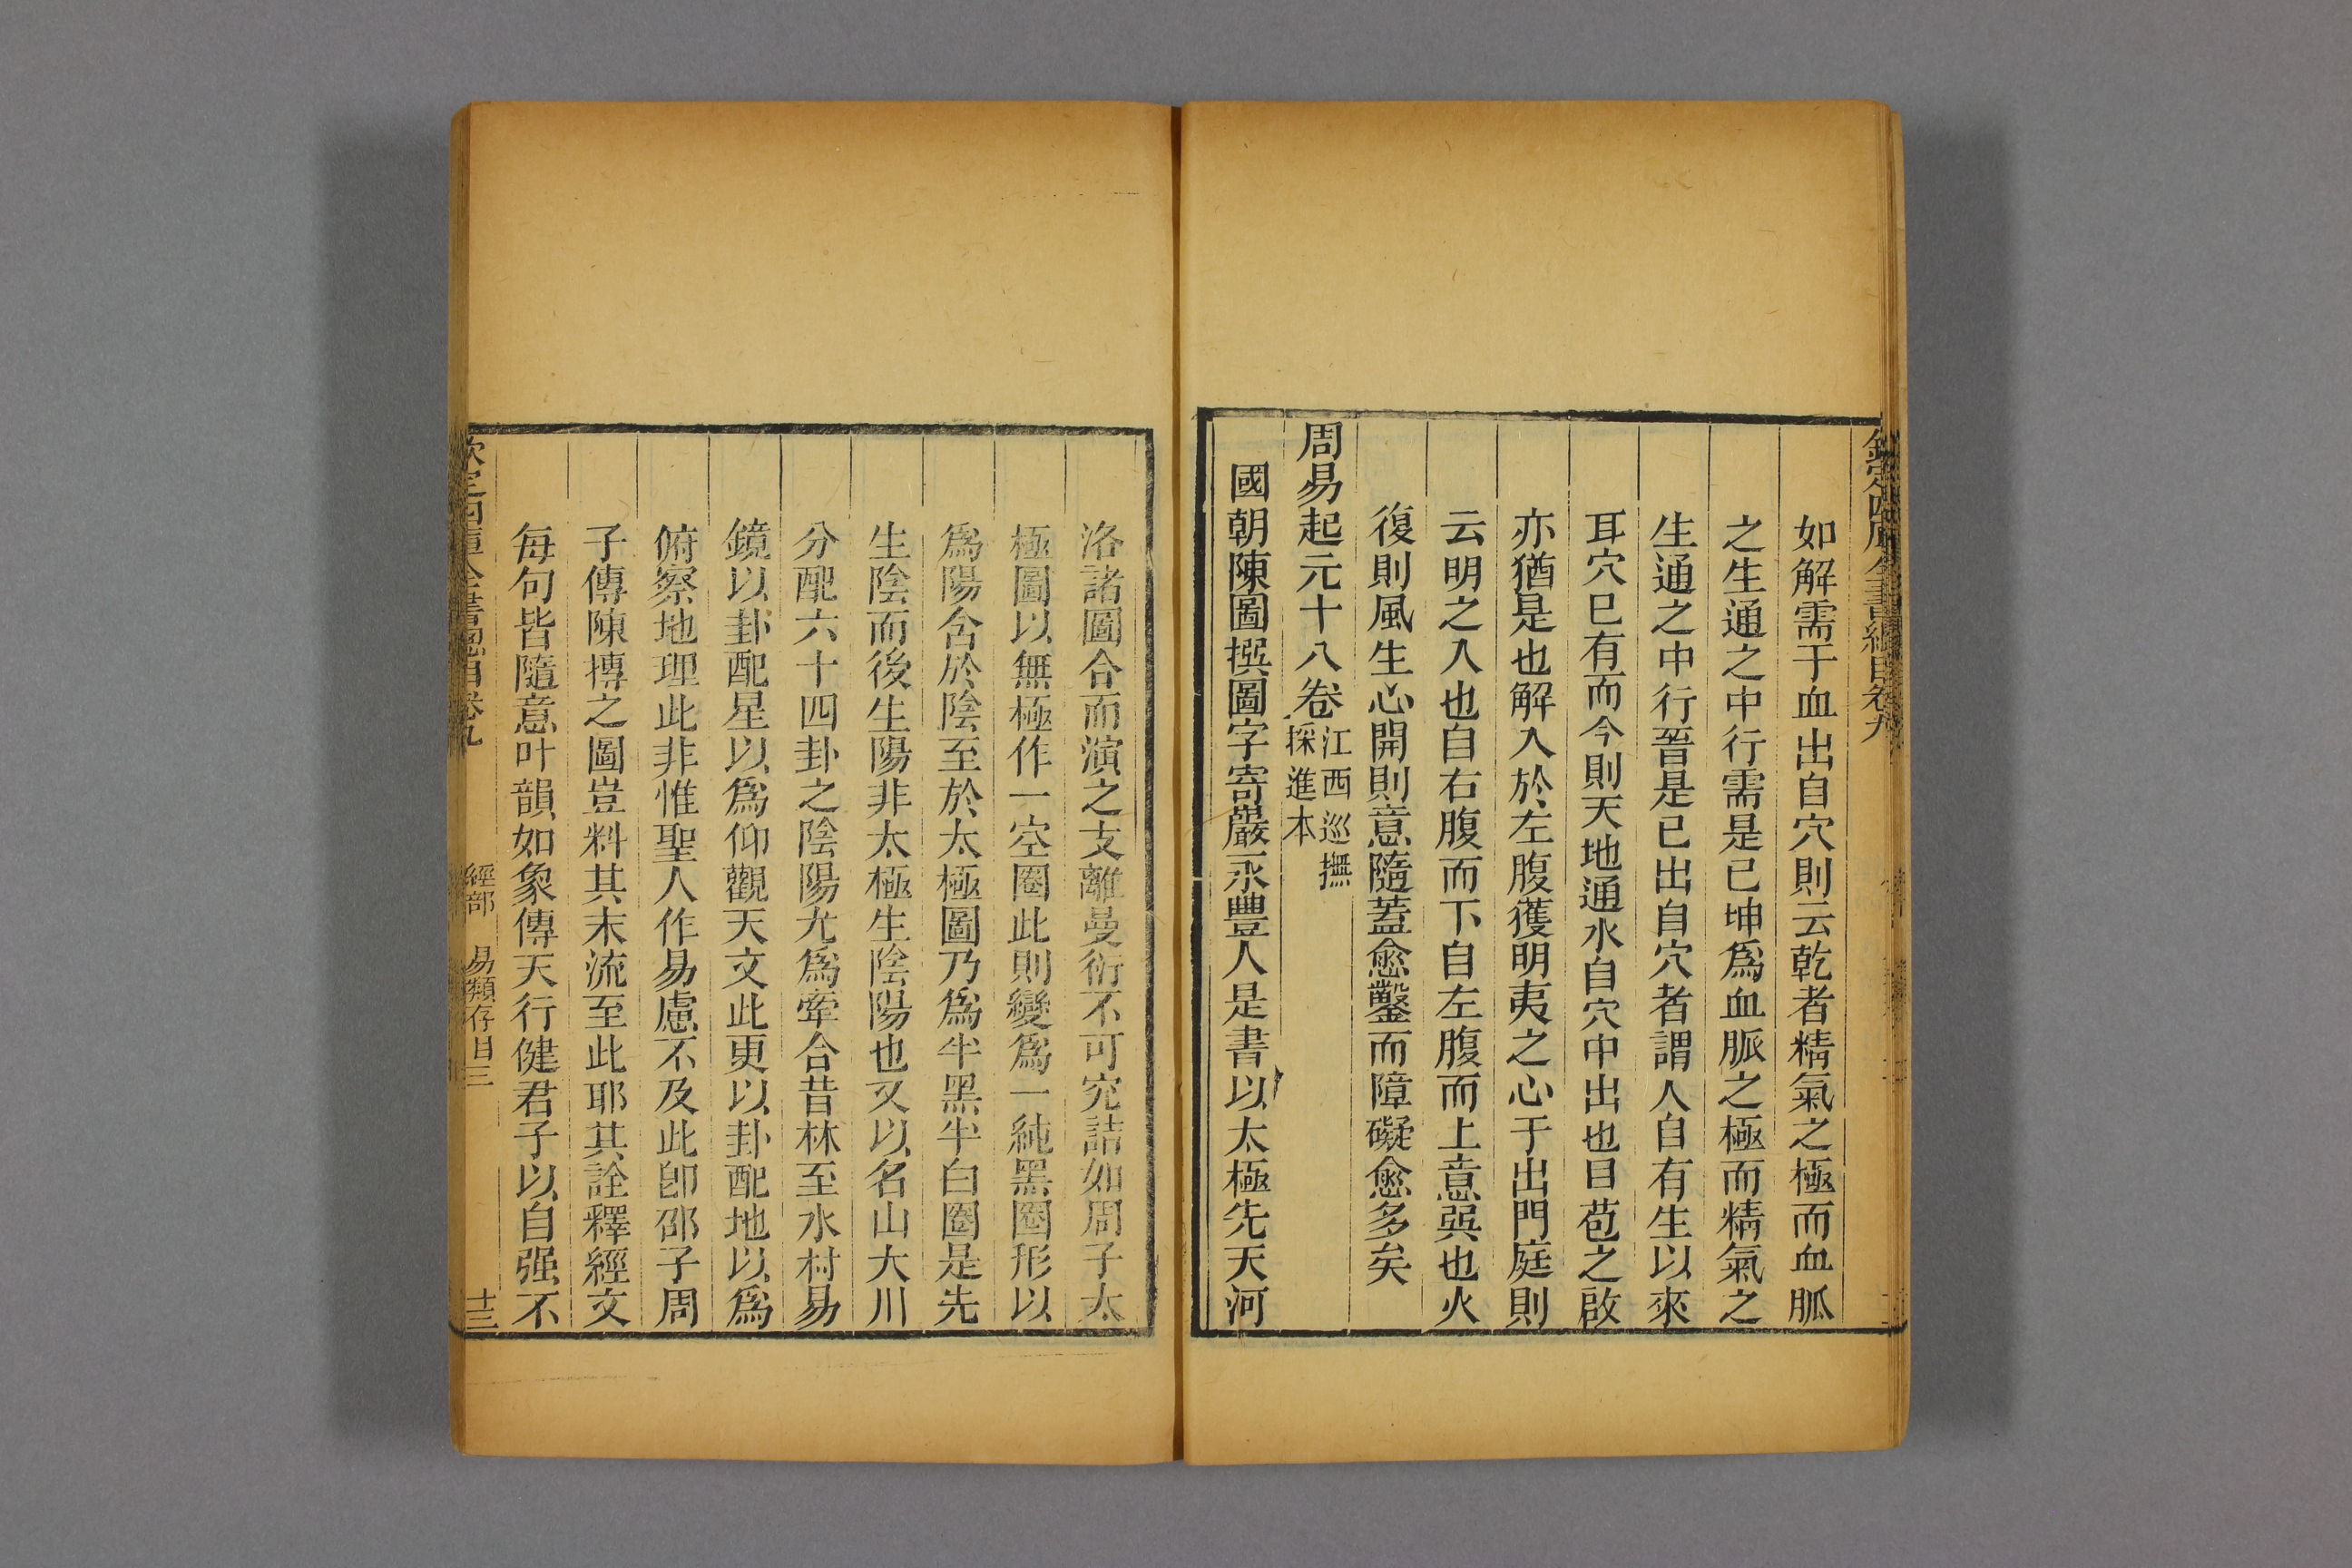 欽定四庫全書總目卷九
如解需于血出自穴則云乾者精氣之極而血脈
之生通之中行需是已坤爲血脈之極而精氣之
生通之中行晉是已出自穴者謂人自有生以來
耳穴已有而今則天地通水自穴中出也目苞之啟
亦猶是也解入於左腹獲明夷之心于出門庭則
云明之入也自右腹而下自左腹而上意巽也火
復則風生心開則意隨蓋愈鑿而障礙愈多矣
周易起元十八卷江西巡撫
採進本
國朝陳圖撰圖字寄巖永豐人是書以太極先天河
洛諸圖合而演之支離曼衍不可究詰如周子太
極圖以無極作一空圈此則變爲一純黑圈形以
爲陽含於陰至於太極圖乃爲半黑半白圈是先
生陰而後生陽非太極生陰陽也又以名山大川
分配六十四卦之陰陽尤爲牽合昔林至水村易
鏡以卦配星以爲仰觀天文此更以卦配地以爲
俯察地理此非惟聖人作易慮不及此卽邵子周
子傳陳摶之圖豈料其末流至此耶其詮釋經文
每句皆隨意叶韻如象傳天行健君子以自强不
欽定四庫全書總目卷九
經部 易類存目三
十三